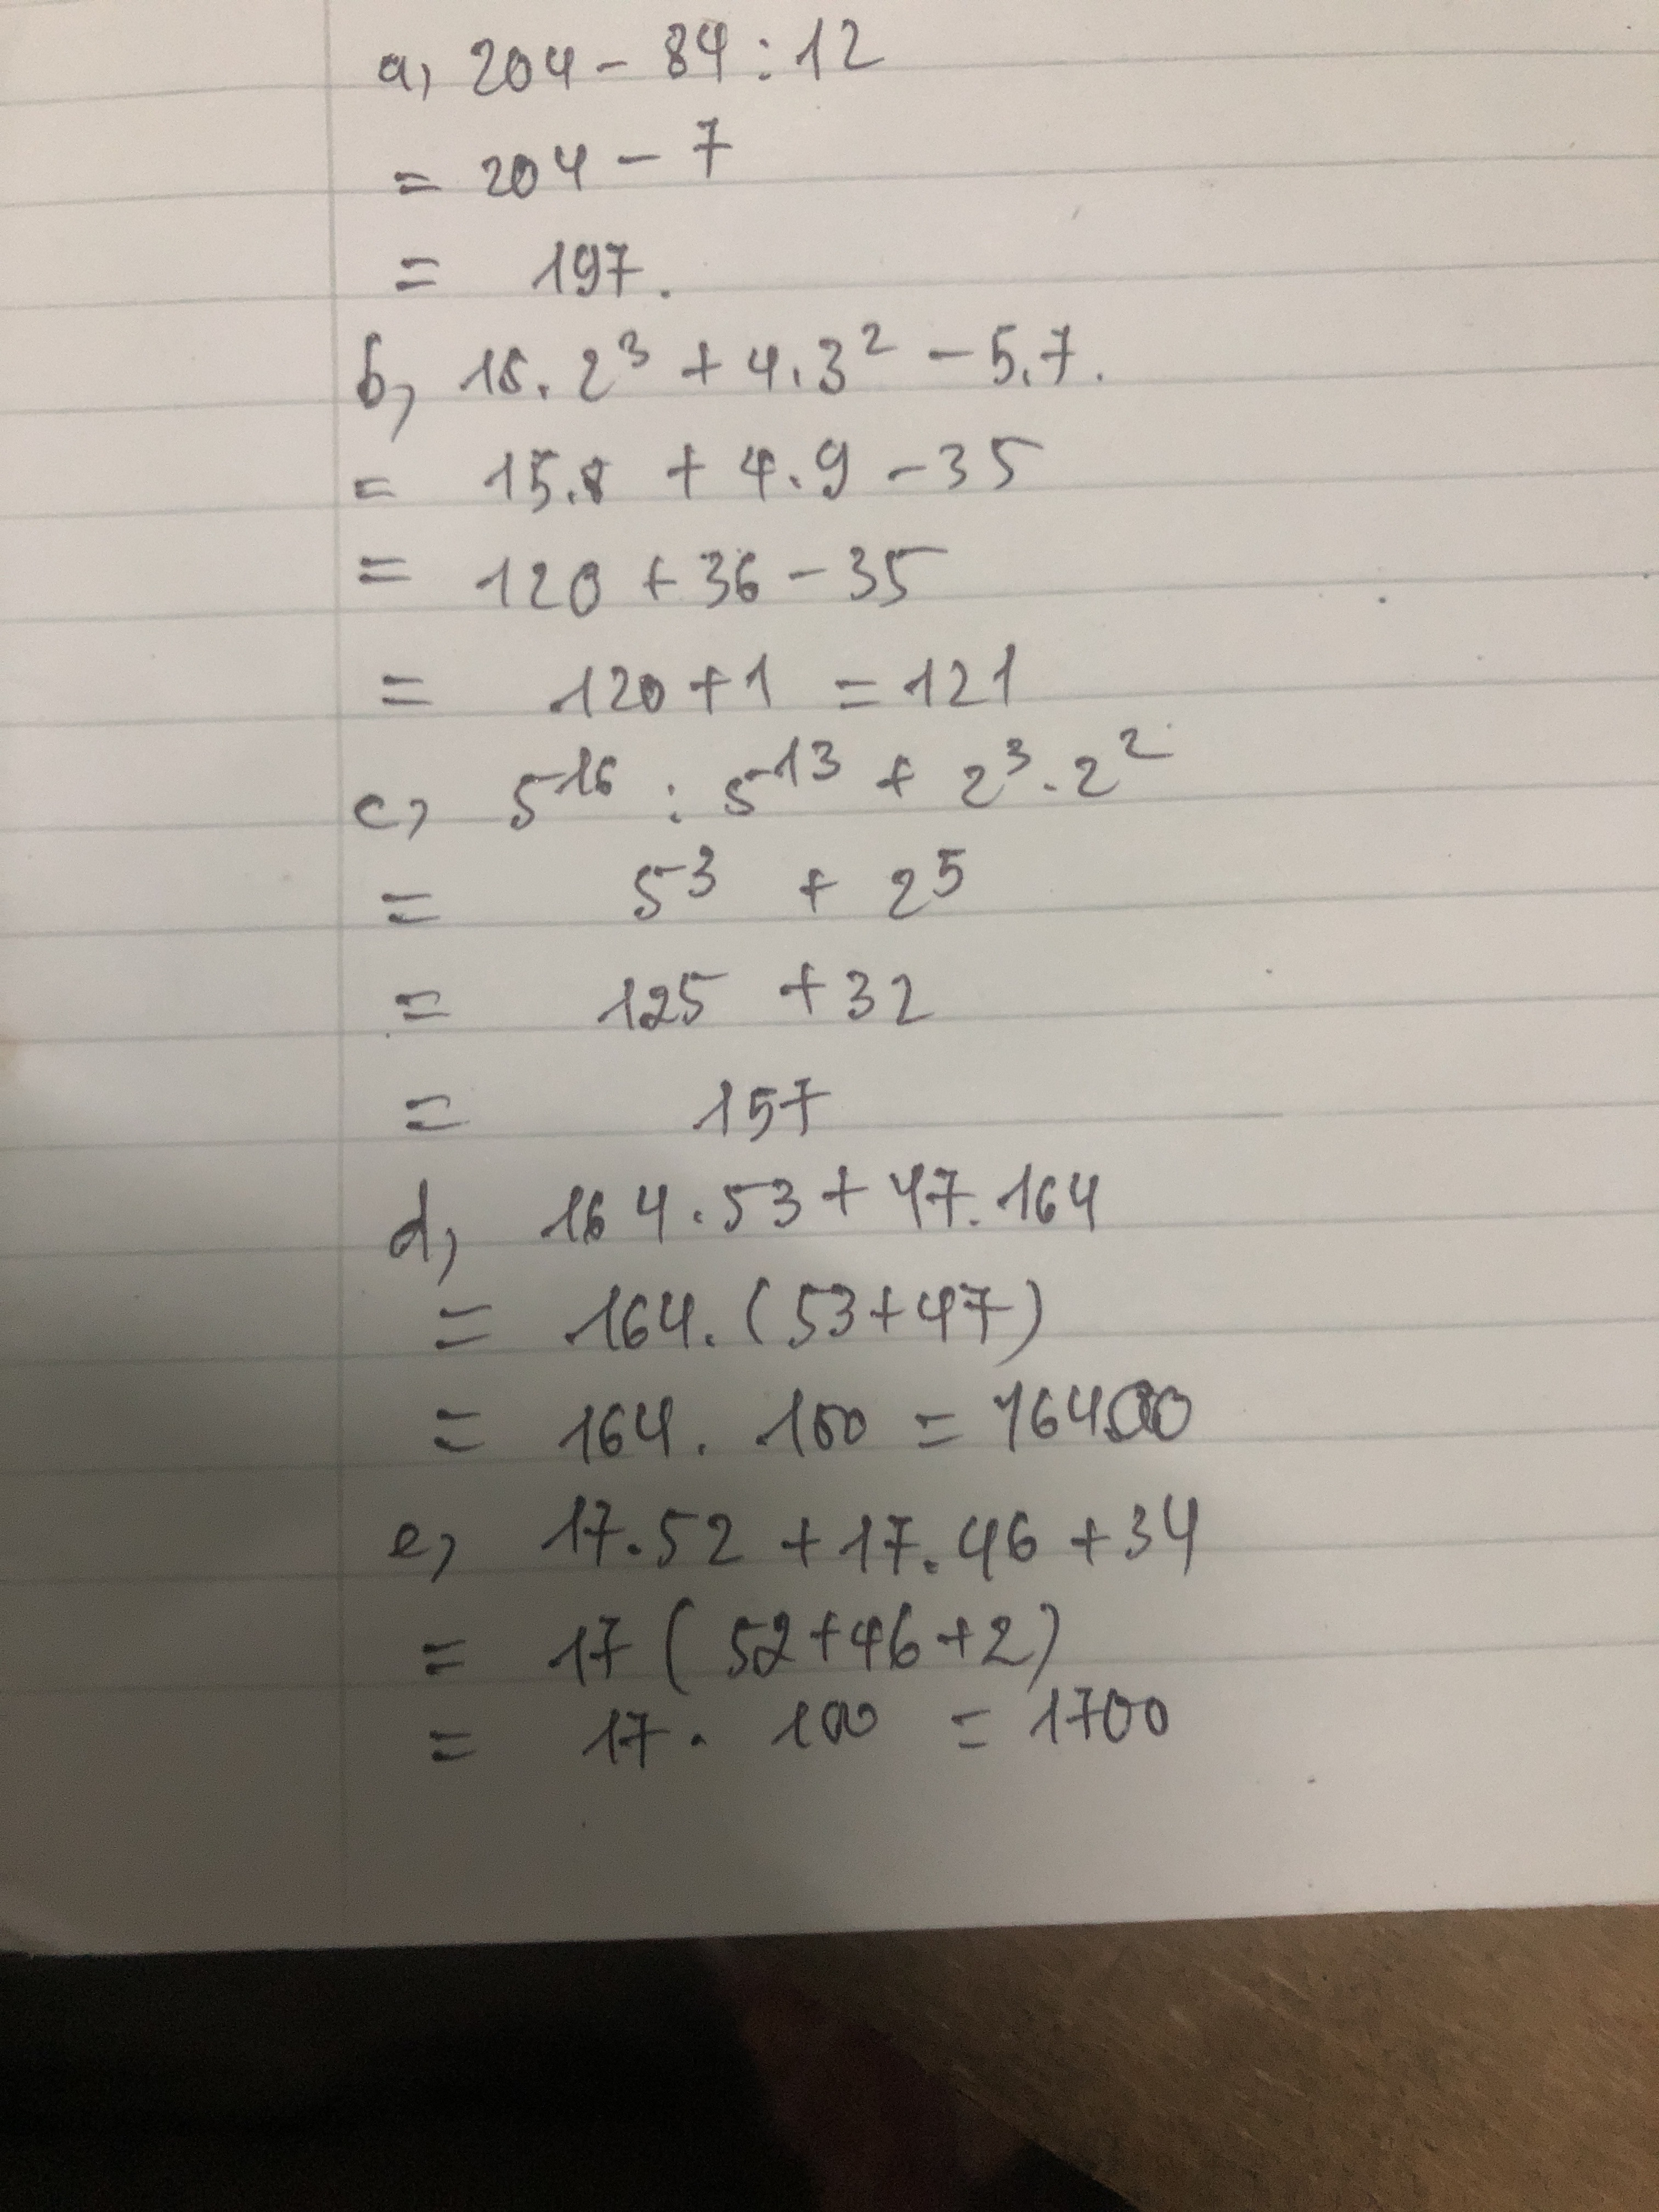 a, 204 - 84 : 12
= 204 - 7
= 197.
b, 15. 2³ + 4.3² - 5.7.
= 15.8 + 4.9 - 35
= 120 + 36 - 35
= 120 + 1 = 121
c, 5¹⁶ : 5¹³ + 2³. 2²
= 5³ + 2⁵
= 125 + 32
= 157
d, 164.53 + 47.164
= 164. (53+47)
= 164. 100 = 16400
e, 17.52 + 17.46 + 34
= 17 (52+46+2)
= 17. 100 = 1700